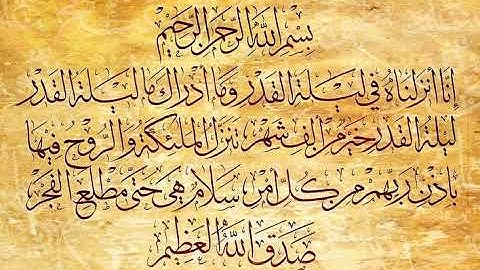 بسم الله الرحمن الرحيم
إنا أنزلناه في ليلة القدر وما أدراك ما ليلة القدر
ليلة القدر خير من ألف شهر تنزل الملئكة والروح فيها
بإذن ربهم من كل أمر سلام هي حتى مطلع الفجر
صدق الله العظيم